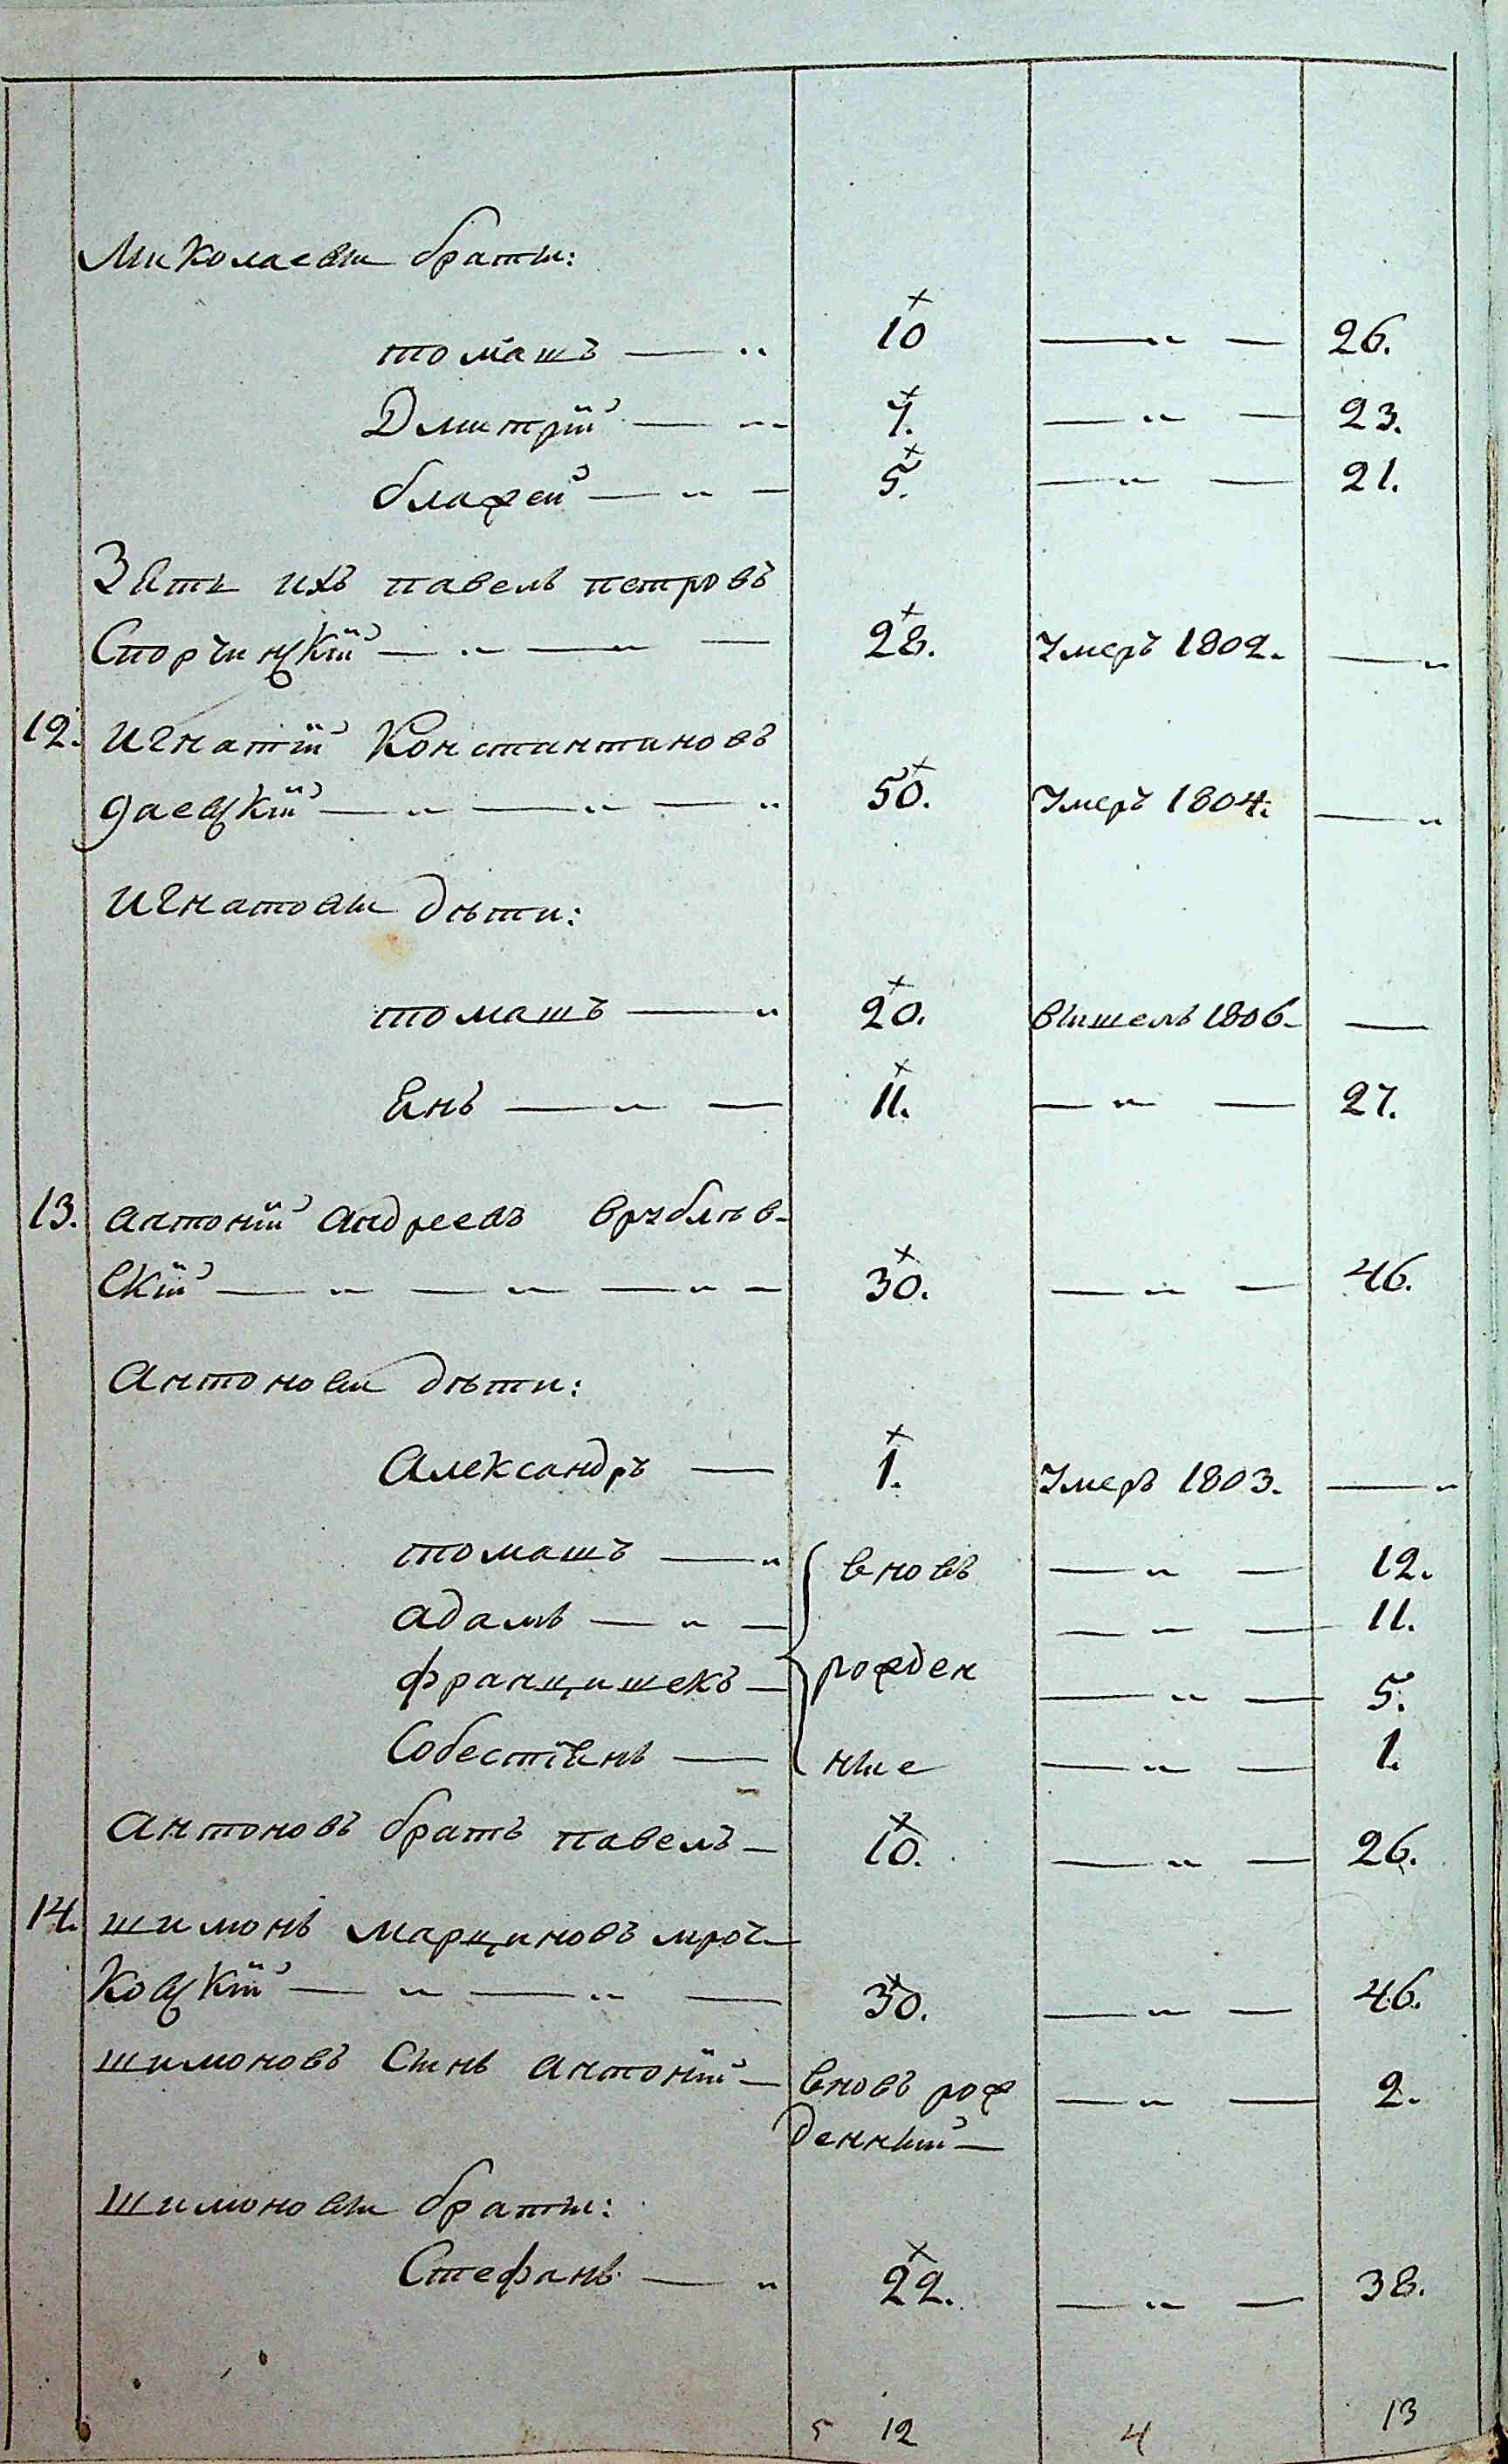 Миколаевы браты:
томашъ — „ 10 — „ — 26.
Дмитрій — „ 7. — „ — 23.
блажей — „ — 5. — „ — 21.
Зять ихъ павелъ петровъ
Сторчинскій — „ — „ — 28. Умеръ 1802. — „
12. игнатій Константиновъ
гаевскій — „ — „ — „ 50. Умеръ 1804. — „
игнатовы дѣти:
томашъ — „ 20. вышелъ 1806. —
янъ — „ — 11. — „ — 27.
13. антоній андреевъ врублѣв-
скій — „ — „ — „ — 30. — „ — 46.
антоновы дѣти:
Александръ — 1. Умеръ 1803. — „
томашъ — „ вновь — „ — 12.
адамъ — „ — — „ — 11.
францишекъ — рожден — „ — 5.
Собестіянъ — ные — „ — 1.
антоновъ братъ павелъ — 10. — „ — 26.
14. шимонъ марциновъ мроч-
ковскій — „ — „ — 30. — „ — 46.
шимоновъ сынъ антоній — вновь рож — „ — 2.
денный —
шимоновы браты:
Стефанъ — „ 22. — „ — 38.
5 12 4 13